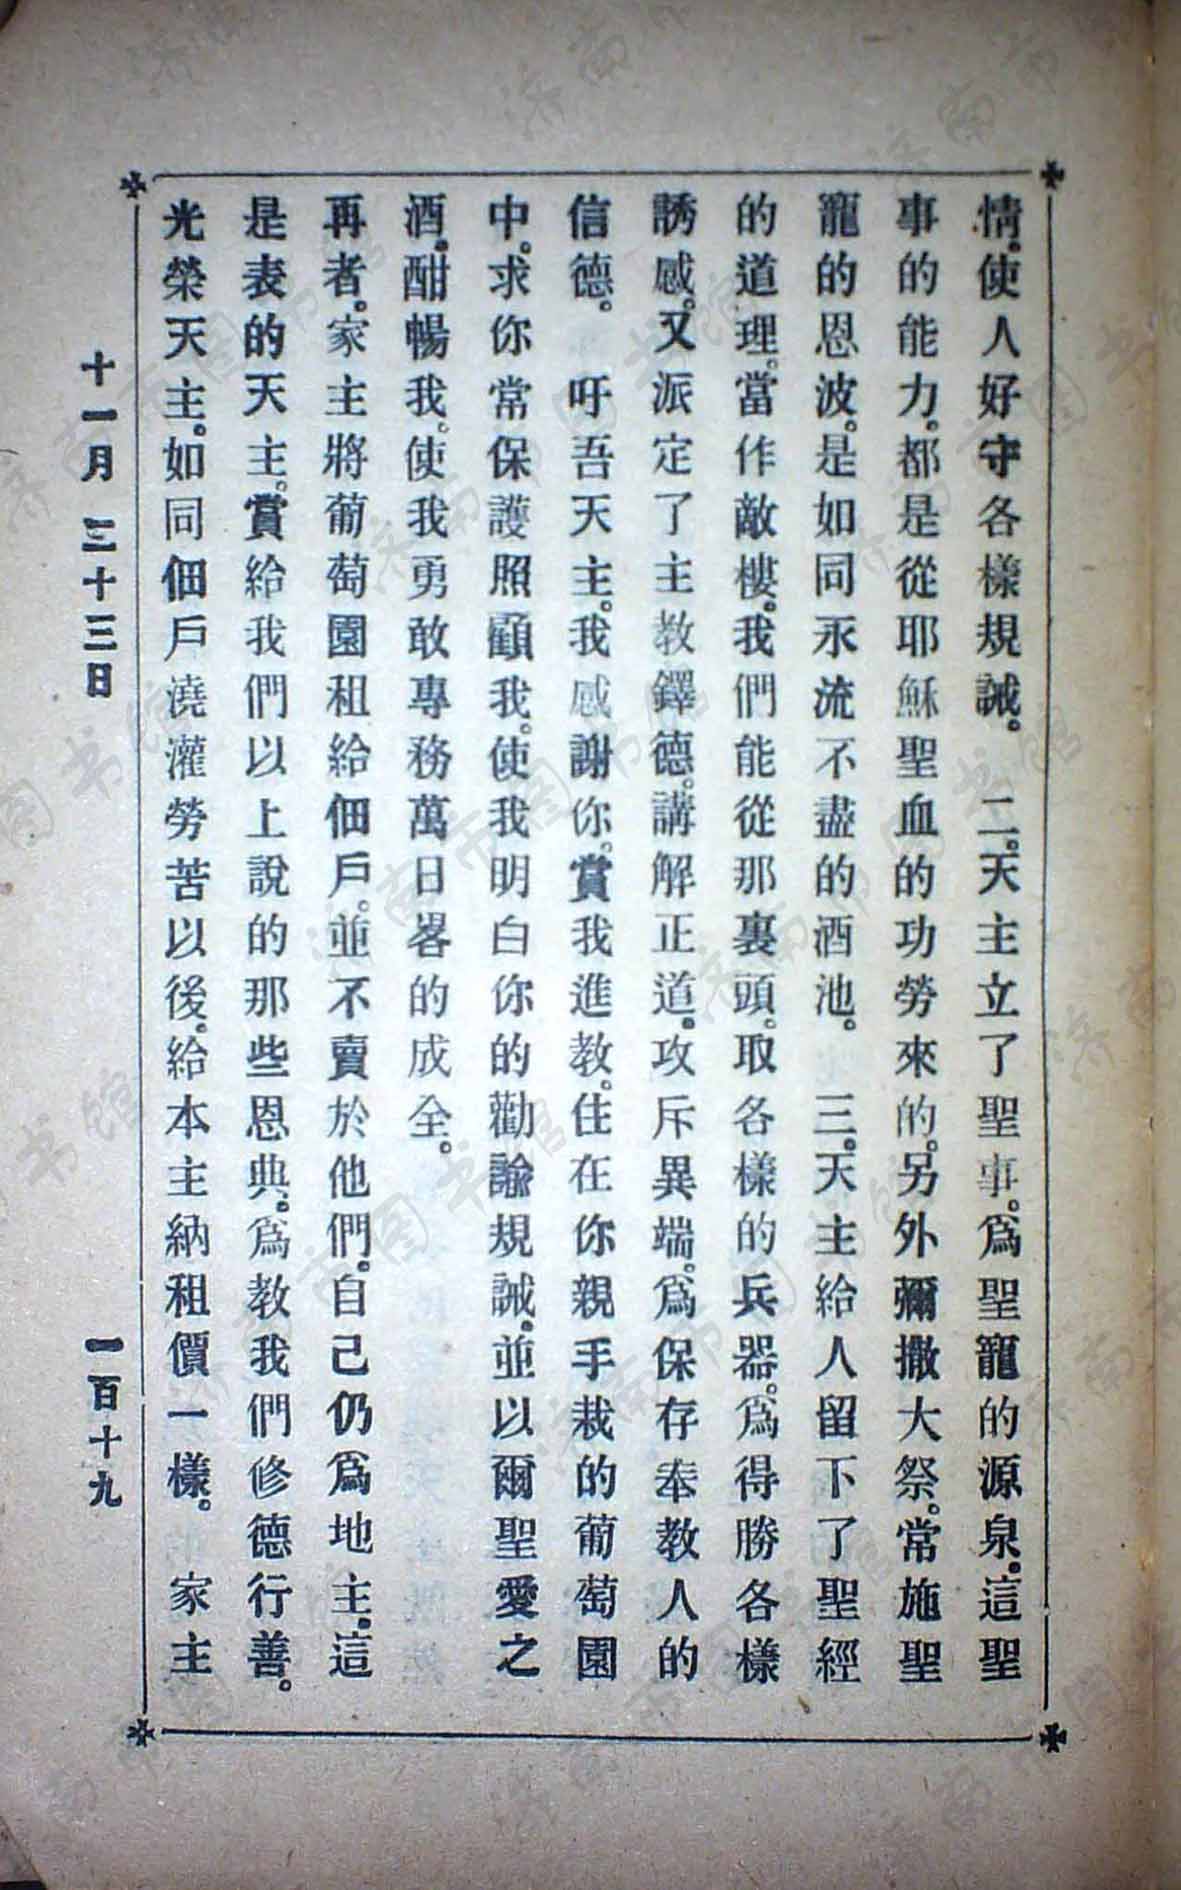 情。使人好守各樣規誡。　二。天主立了聖事。爲聖寵的源泉。這聖
事的能力。都是從耶穌聖血的功勞來的。另外彌撒大祭。常施聖
寵的恩波。是如同永流不盡的酒池。　三。天主給人留下了聖經
的道理。當作敵樓。我們能從那裏頭。取各樣的兵器。爲得勝各樣
誘感。又派定了主教鐸德。講解正道。攻斥異端。爲保存奉教人的
信德。　吁吾天主。我感謝你。賞我進教。住在你親手栽的葡萄園
中。求你常保護照顧我。使我明白你的勸諭規誡。並以爾聖愛之
酒。酣暢我。使我勇敢專務萬日畧的成全。
再者。家主將葡萄園租給佃戶。並不賣於他們。自己仍爲地主。這
是表的天主。賞給我們以上說的那些恩典。爲教我們修德行善。
光榮天主。如同佃戶澆灌勞苦以後。給本主納租價一樣。　家主
十一月　二十三日　一百十九